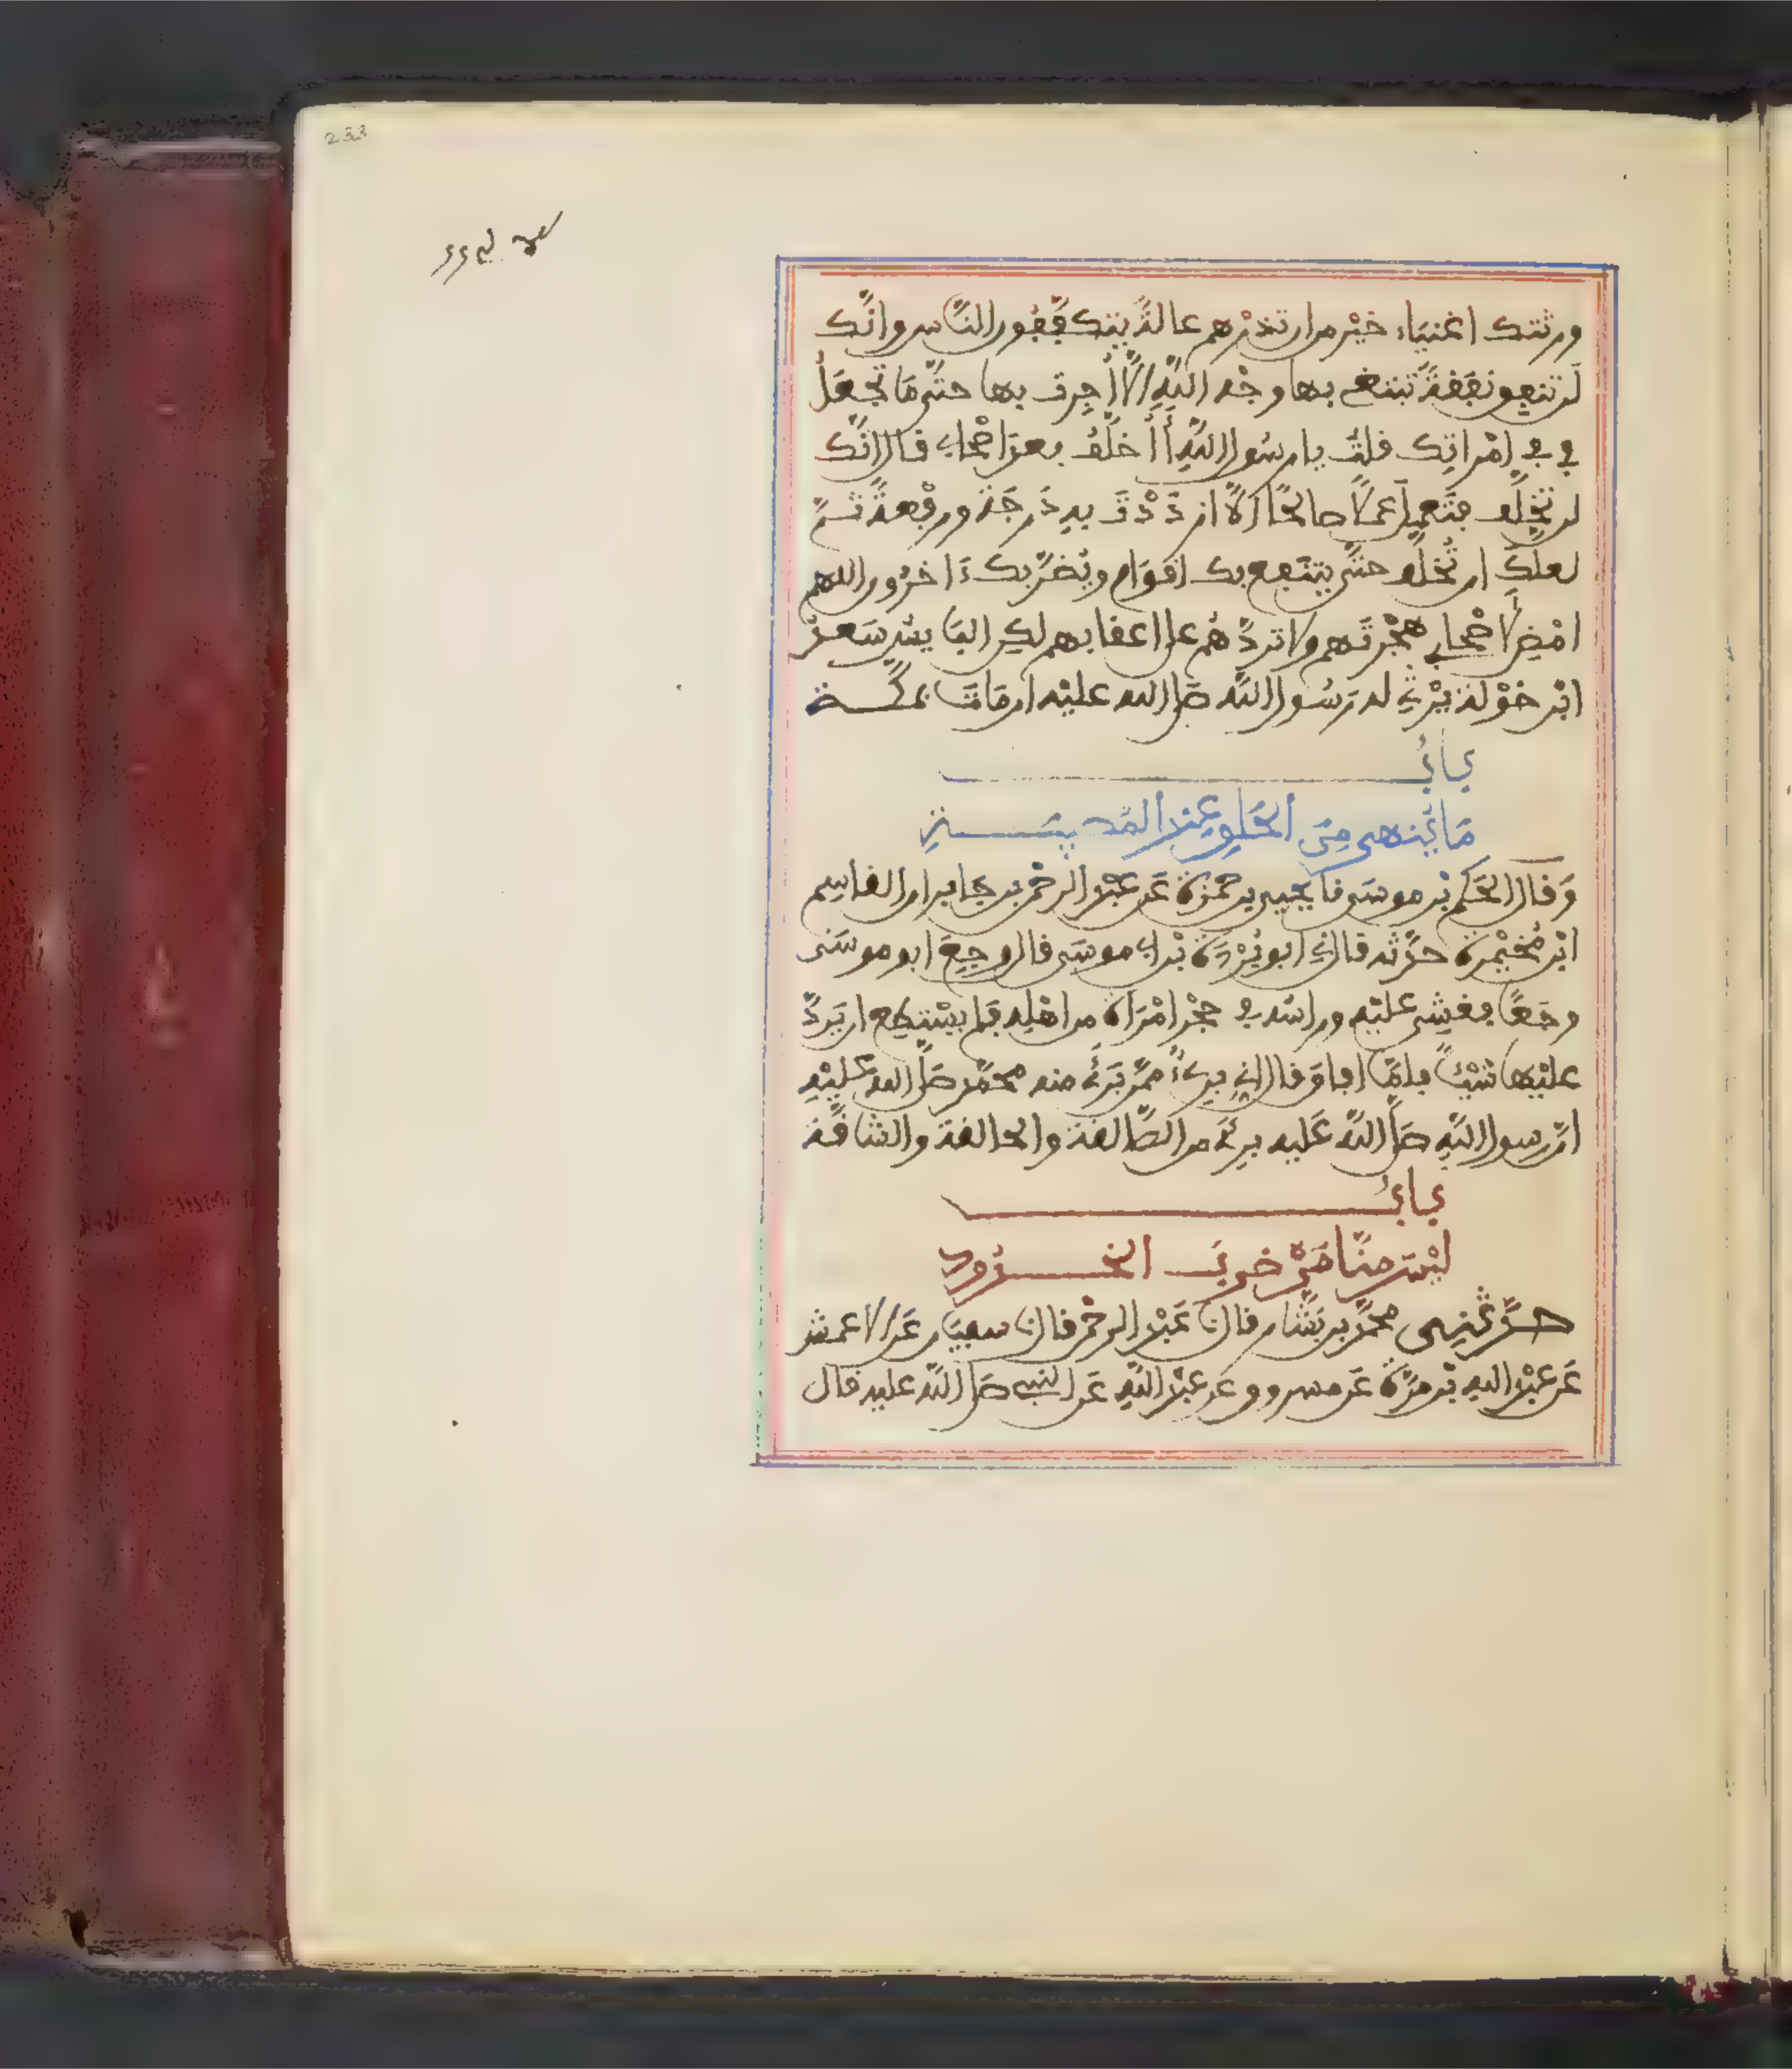 233
ورثتك اغنياء خير من ان تذرهم عالة يتكففون الناس وانك
لن تنفق نفقة تبتغي بها وجه الله الا اجرت بها حتى ما تجعل
في في امراتك قلت يا رسول الله أأخلف بعد اصحابي قال انك
لن تخلف فتعمل عملا صالحا الا ازددت به درجة ورفعة ثم
لعلك ان تخلف حتى ينتفع بك اقوام ويضر بك ءاخرون اللهم
امض لاصحابي هجرتهم ولا تردهم على اعقابهم لكن البايس سعد
ابن خولة يرثي له رسول الله صلى الله عليه ان مات بمكة
باب
ما ينهى من الحلق عند المصيبة
وقال الحكم بن موسى نا يحيى بن حمزة عن عبد الرحمن بن جابر ان القاسم
ابن مخيمرة حدثه قال ني ابو بردة بن ابي موسى قال وجع ابو موسى
وجعا فغشي عليه وراسه في حجر امراة من اهله فلم يستطع ان يرد
عليها شيئا فلما افاق قال اني بريء ممن برئ منه محمد صلى الله عليه
ان رسول الله صلى الله عليه برئ من الصالقة والحالقة والشاقة
باب
ليس منا من ضرب الخدود
حدثني محمد بن بشار قال نا عبد الرحمن قال نا سفيان عن الاعمش
عن عبد الله بن مرة عن مسروق عن عبد الله عن النبي صلى الله عليه قال